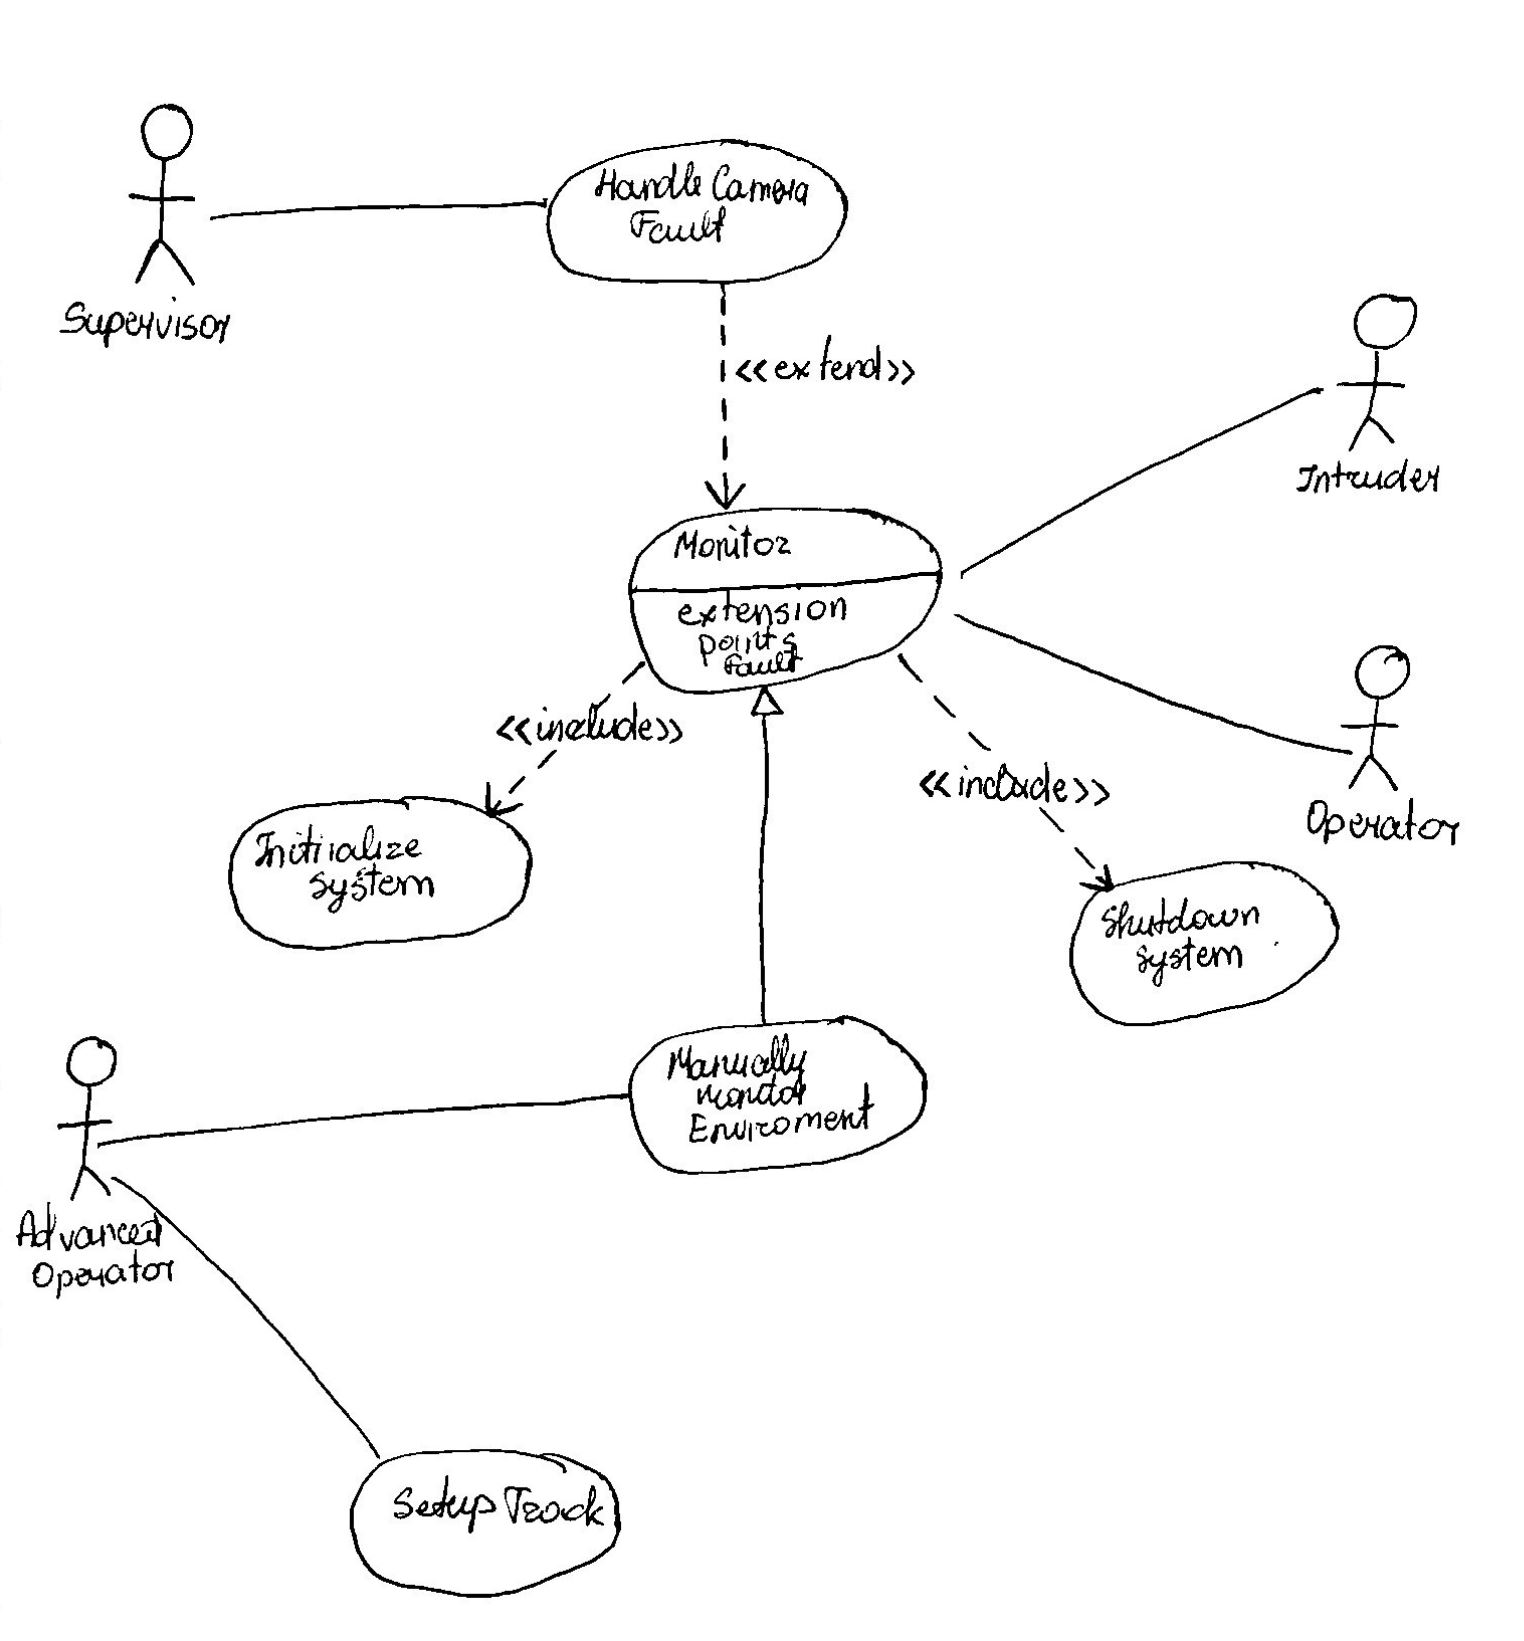 Handle Camera
Fault
Supervisor
<<extend>>
Intruder
Monitor
extension
points
Fault
<<include>>
<<include>>
Operator
Initialize
system
Shutdown
system
Manually
monitor
Enviroment
Advanced
Operator
Setup Track